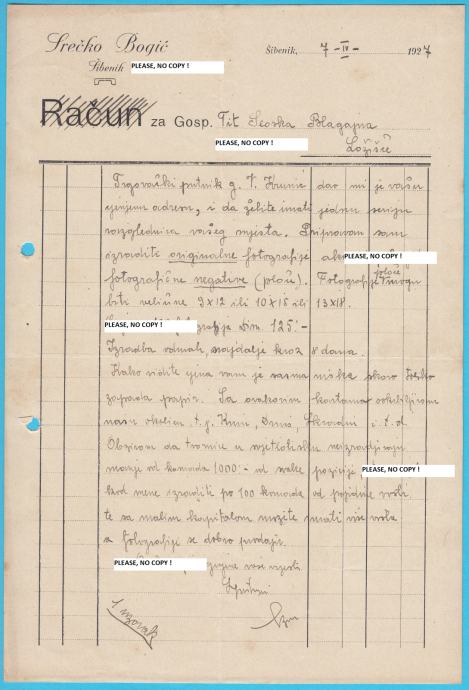 Srećko Bogić
Šibenik PLEASE, NO COPY !
Šibenik, 7 - IV - 1927
Račun za Gosp. Tit Seoska Blagajna
PLEASE, NO COPY !
Ložišće
Trgovački putnik g. V. Krunić dao mi je vašu
cjenjenu adresu, i da želite imati jednu seriju
razglednica vašeg mjesta. Pripravan sam
izraditi originalne fotografije ako PLEASE, NO COPY !
fotografične negative (ploče). Fotografije mogu
ploče
biti veličine 9x12 ili 10x15 ili 13x18.
PLEASE, NO COPY ! Din. 125:-
Izradba odmah, najdalje kroz 8 dana.
Kako vidite cjena vam je sasma niska skoro
zapada papir. Sa ovakovim kartama
našu okolicu t.j. Knin, Drniš, Skradin i.t.d.
Obzirom da tvornice u svjetlotisku neizradjuju
manje od komada 1000:- od svake pozicije PLEASE, NO COPY !
kod mene izraditi po 100 komada od pojedine vrsti
te sa malim kapitalom možete imati više vrsta
a fotografije se dobro prodaju.
PLEASE, NO COPY ! vaše vijesti.
1 uzorak